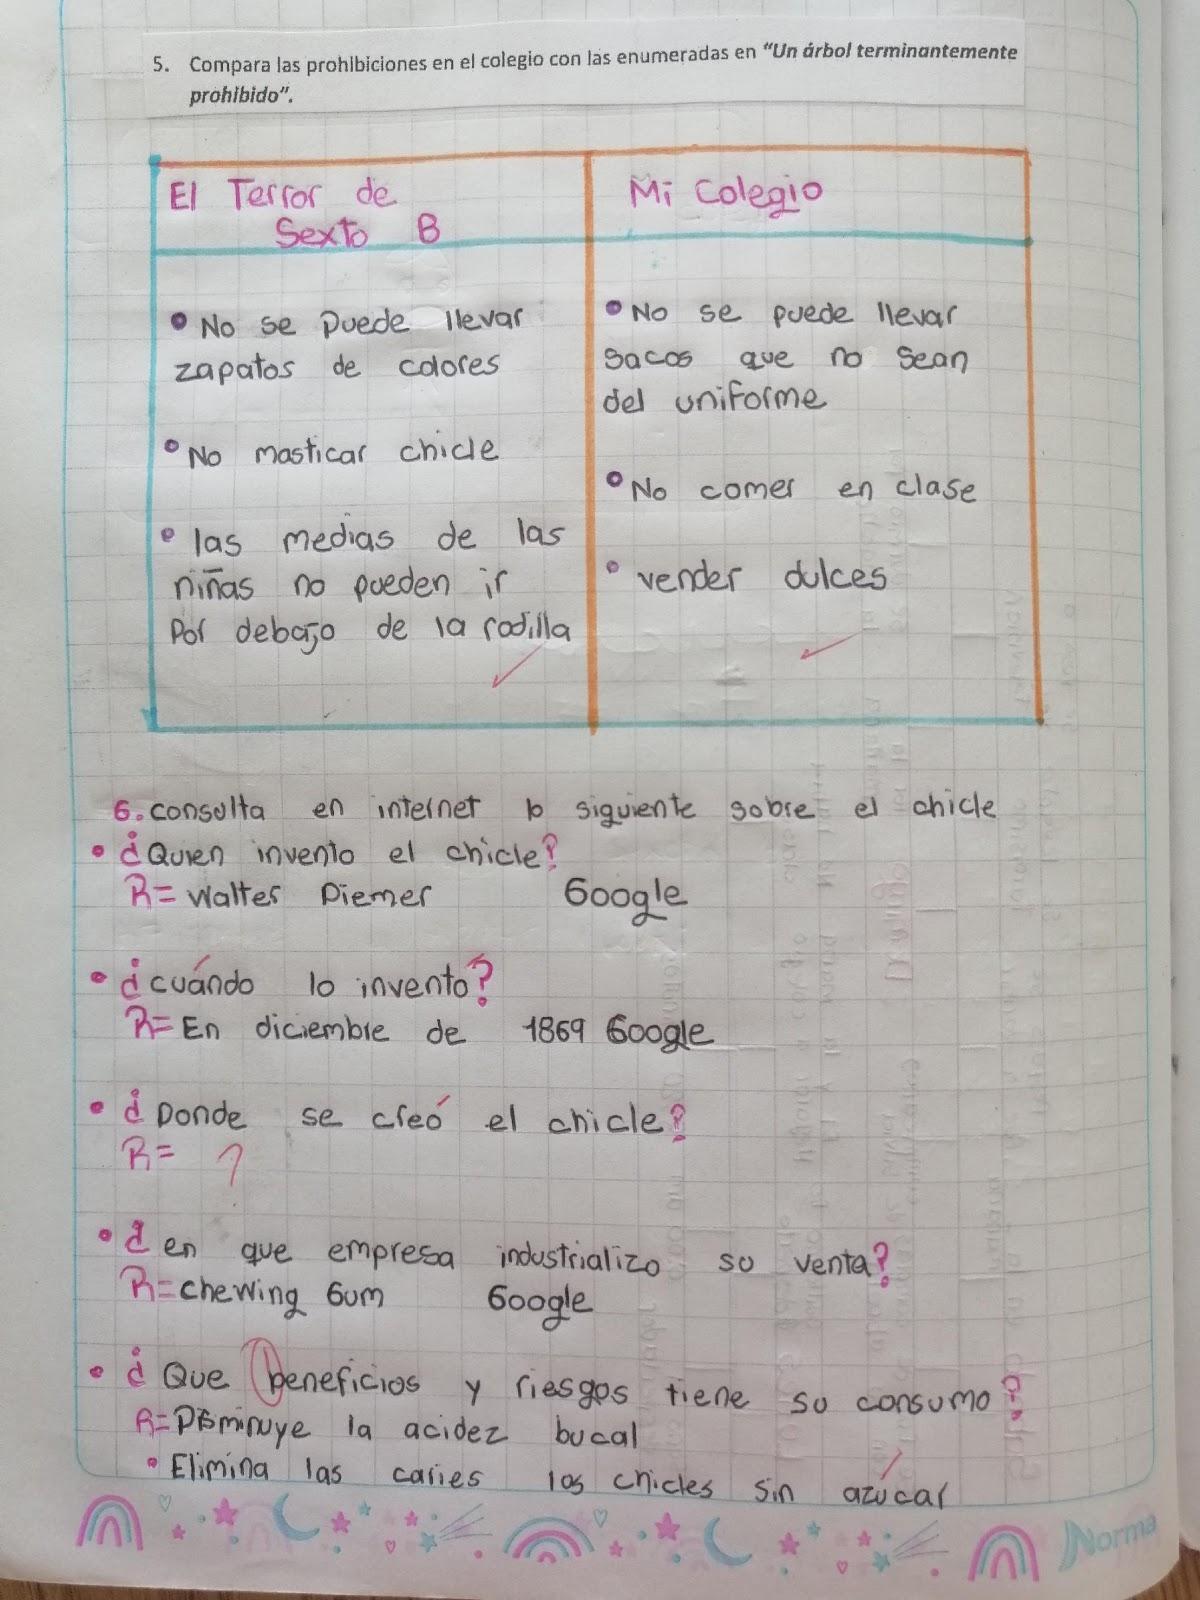 5. Compara las prohibiciones en el colegio con las enumeradas en "Un árbol terminantemente
prohibido".
El Terror de
Sexto B
Mi Colegio
• No se Puede llevar
zapatos de colores
• No masticar chicle
• las medias de las
niñas no pueden ir
Por debajo de la rodilla
• No se puede llevar
sacos que no sean
del uniforme
• No comer en clase
• vender dulces
6. consulta en internet lo siguiente sobre el chicle
• ¿Quien invento el chicle?
R= Walter Diemer Google
• ¿cuándo lo invento?
R= En diciembre de 1869 Google
• ¿Donde se creó el chicle?
R= ?
• ¿en que empresa industrializo su venta?
R= chewing Gum Google
• ¿Que beneficios y riesgos tiene su consumo?
R= Disminuye la acidez bucal
• Elimina las caries los chicles sin azúcar
Norma